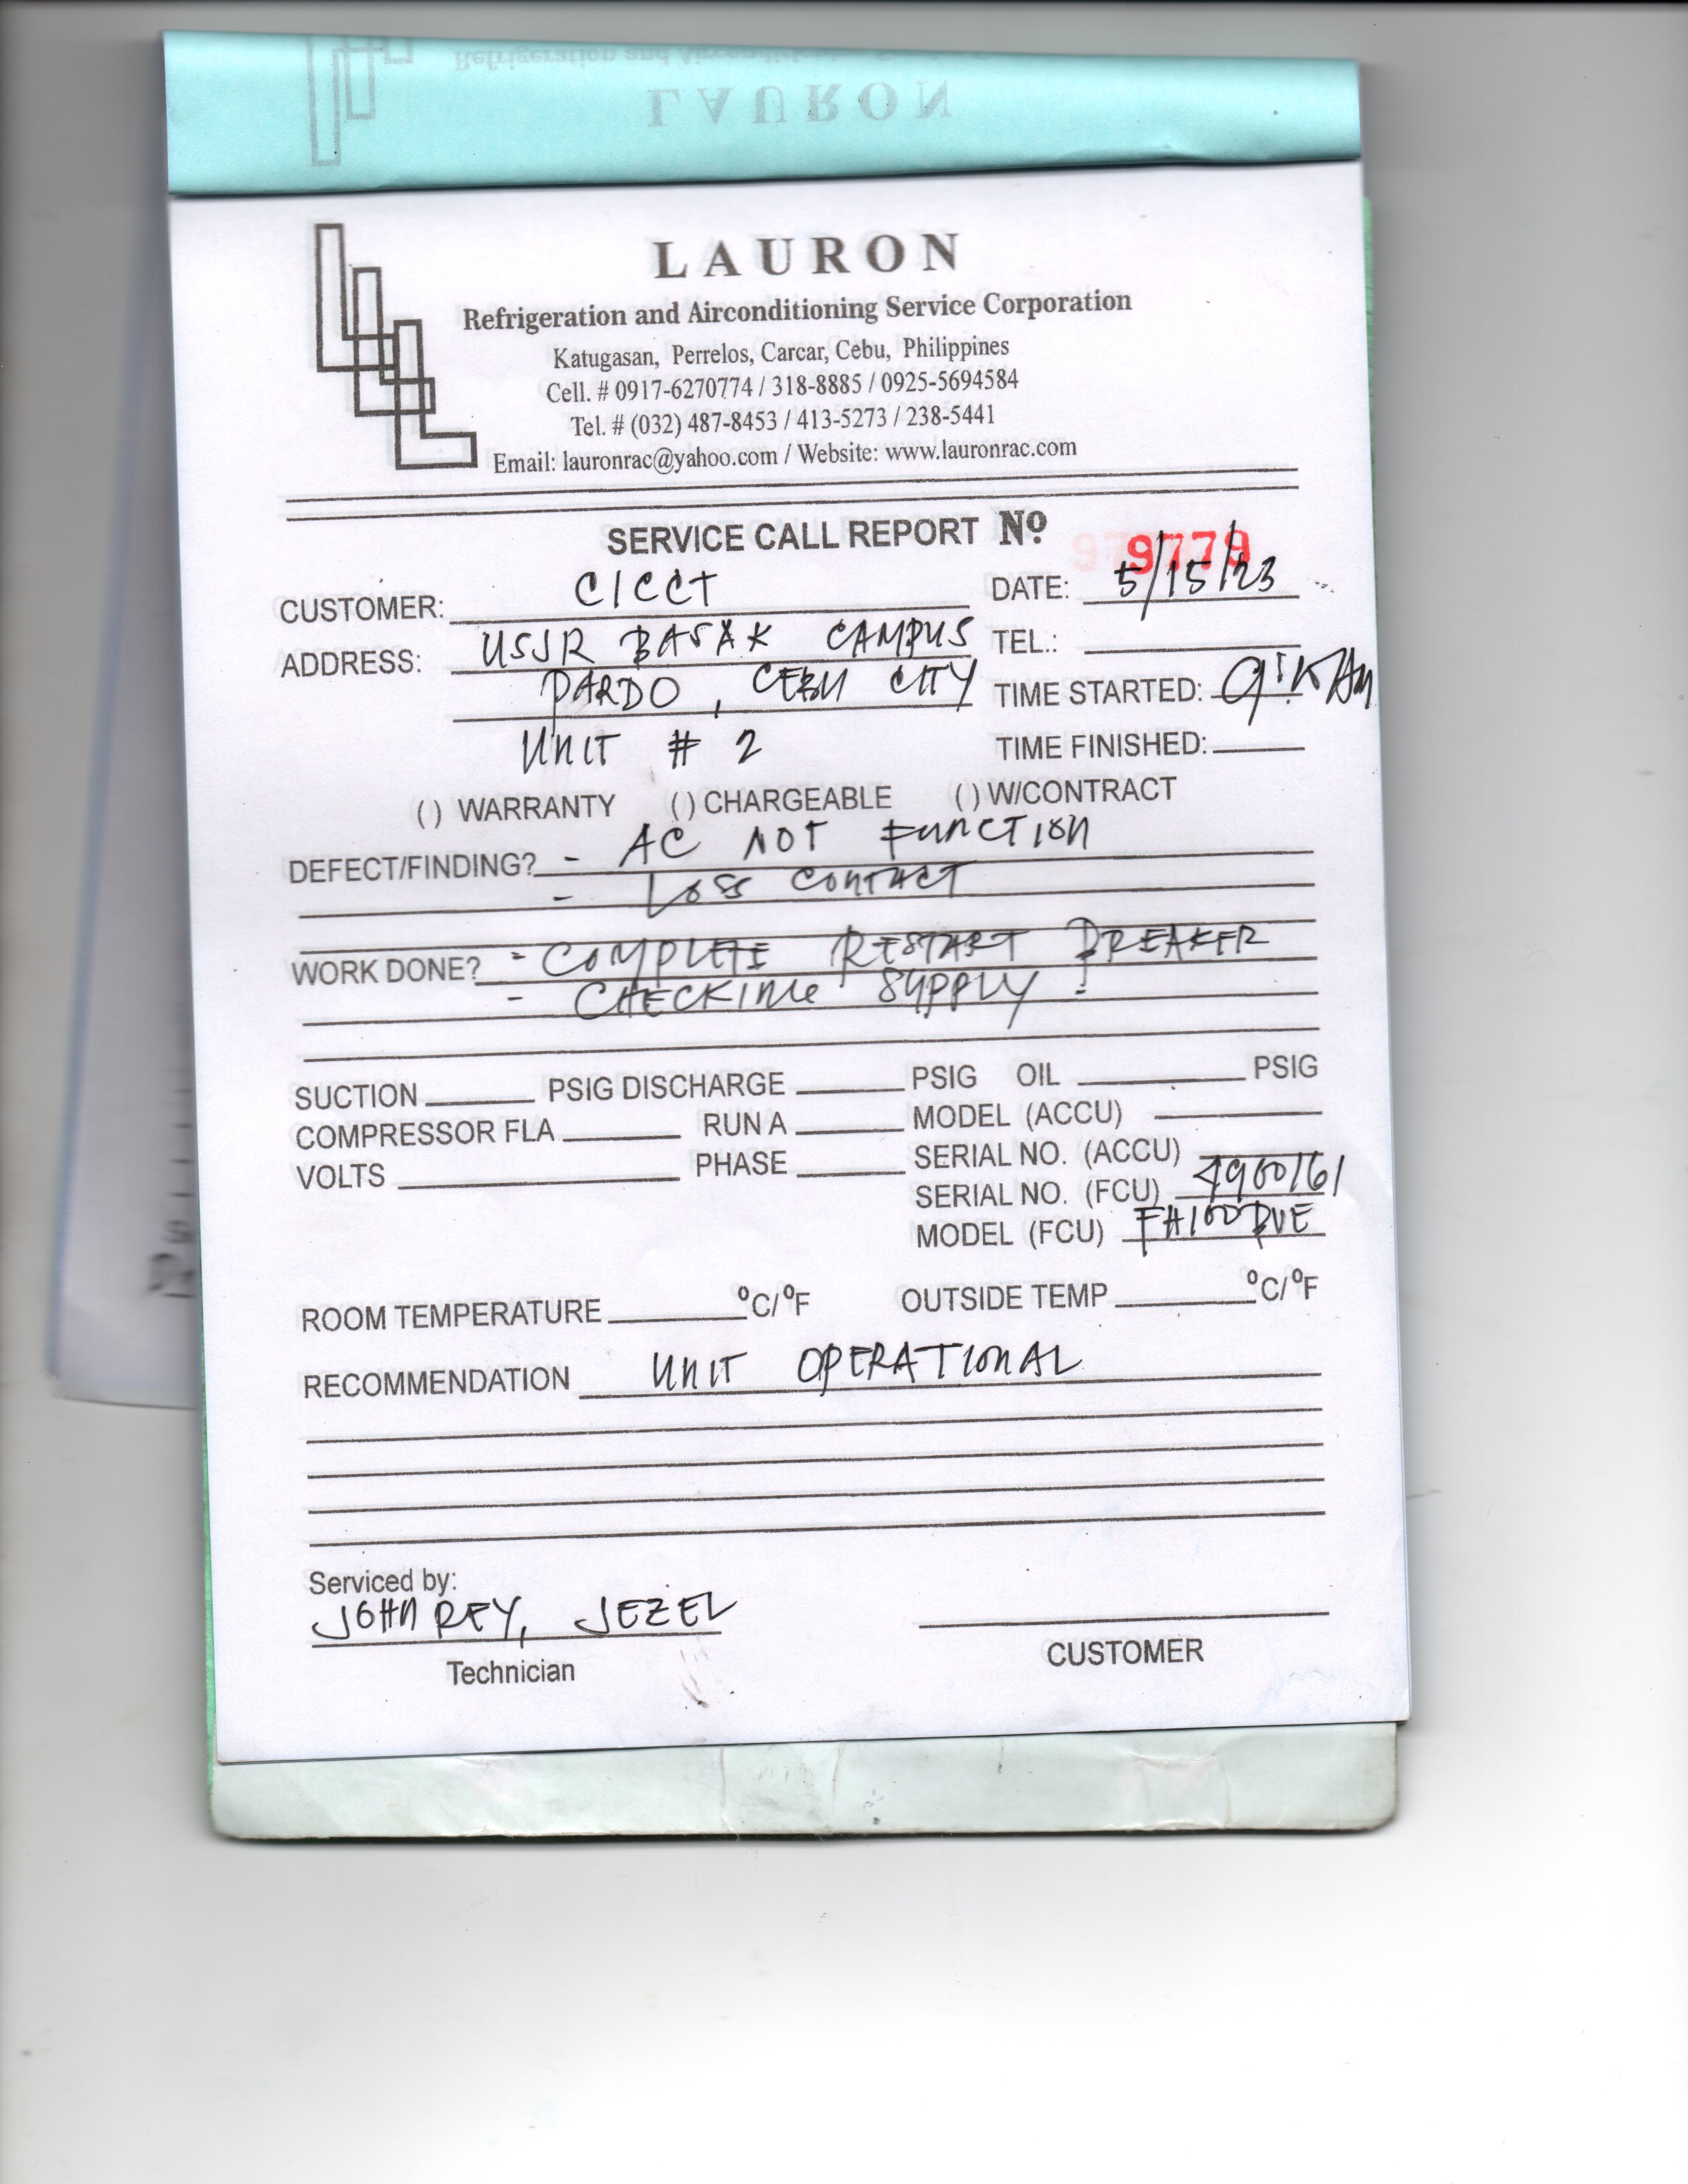 LAURON
Refrigeration and Airconditioning Service Corporation
Katugasan, Perrelos, Carcar, Cebu, Philippines
Cell. # 0917-6270774 / 318-8885 / 0925-5694584
Tel. # (032) 487-8453 / 413-5273 / 238-5441
Email: lauronrac@yahoo.com / Website: www.lauronrac.com
SERVICE CALL REPORT Nº 9779
CUSTOMER: CICCT DATE: 5/15/23
ADDRESS: USJR BASAK CAMPUS TEL.:
PARDO, CEBU CITY TIME STARTED:
UNIT # 2 TIME FINISHED:
( ) WARRANTY ( ) CHARGEABLE ( ) W/CONTRACT
DEFECT/FINDING? - AC NOT FUNCTION
- LOSS CONTACT
WORK DONE? - COMPLETE RESTART BREAKER
- CHECKING SUPPLY
SUCTION PSIG DISCHARGE PSIG OIL PSIG
COMPRESSOR FLA RUN A MODEL (ACCU)
VOLTS PHASE SERIAL NO. (ACCU)
SERIAL NO. (FCU) 4900161
MODEL (FCU) FH100DVE
ROOM TEMPERATURE ºC/ºF OUTSIDE TEMP ºC/ºF
RECOMMENDATION UNIT OPERATIONAL
Serviced by:
JOHN REY, JEZEL
Technician CUSTOMER